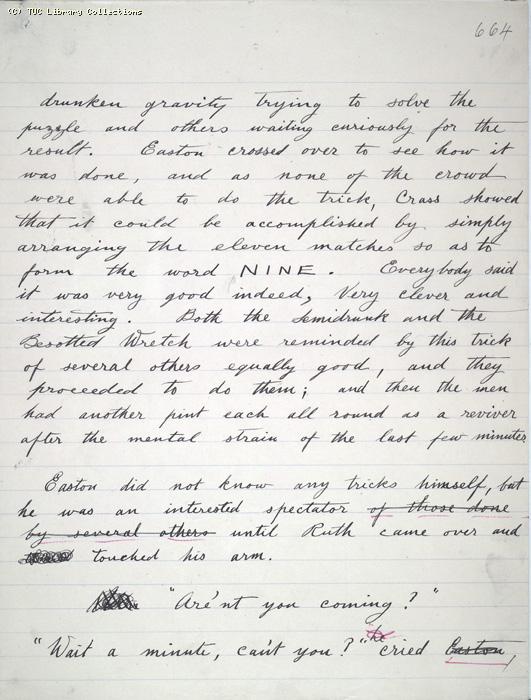 (C) TUC Library Collections
664
drunken gravity trying to solve the
puzzle and others waiting curiously for the
result. Easton crossed over to see how it
was done, and as none of the crowd
were able to do the trick, Crass showed
that it could be accomplished by simply
arranging the eleven matches so as to
form the word NINE. Everybody said
it was very good indeed, Very clever and
interesting. Both the Semidrunk and the
Besotted Wretch were reminded by this trick
of several others equally good, and they
proceeded to do them; and then the men
had another pint each all round as a reviver
after the mental strain of the last few minutes
Easton did not know any tricks himself, but
he was an interested spectator of those done
by several others until Ruth came over and
touched his arm.
"Are'nt you coming?"
"Wait a minute, can't you?" he cried Easton,